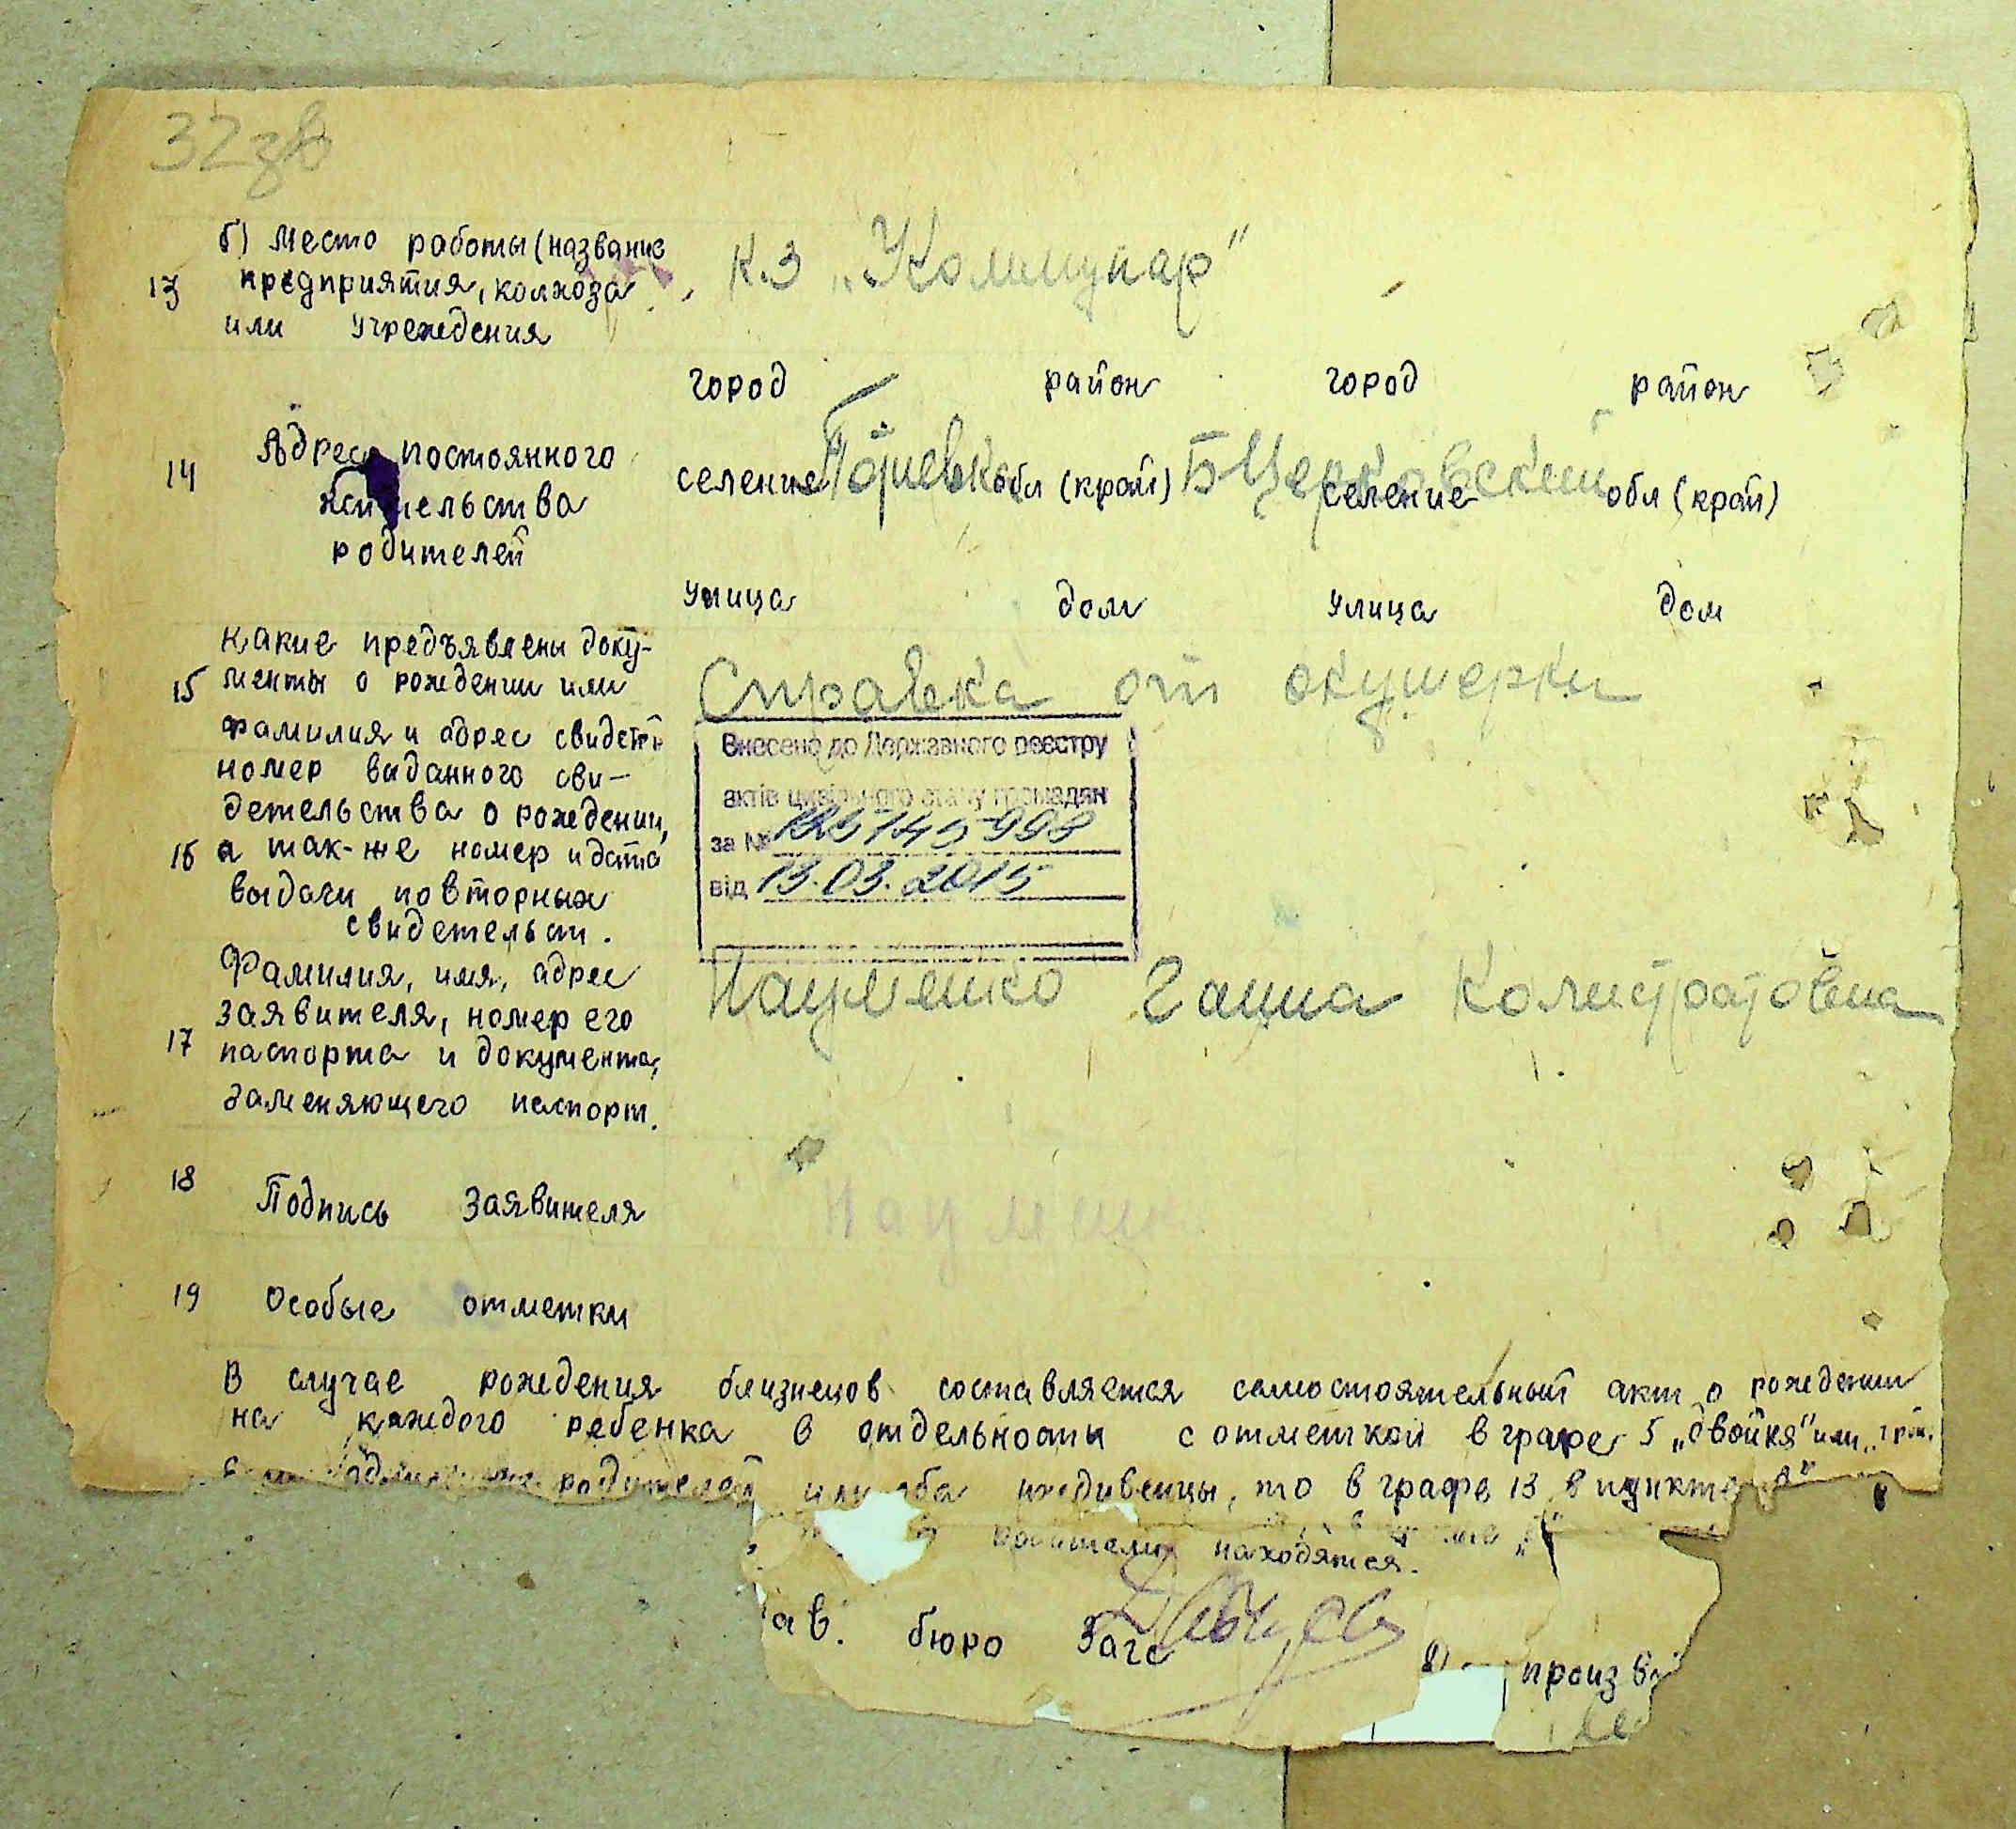 32зв
б) Место работы (название
13 предприятия, колхоза
или учреждения
К.З „Коммунар"
город район город район
14 Адрес постоянного
жительства
родителей
селение обл (край) БЦерковский селение обл (край)
улица дом улица дом
15 какие предъявлены доку-
менты о рождении или
фамилия и адрес
Справка от окушерки
16 номер выданного сви-
детельства о рождении,
а так-же номер и дата
выдачи повторных
свидетельст.
Внесено до Державного реєстру
актів цивільного стану громадян
за №
від 13.03.2015
17 Фамилия, имя, адрес
заявителя, номер его
паспорта и документа,
заменяющего паспорт.
Науменко Ганна Калистратовна
18 Подпись Заявителя
Наумен
19 Особые отметки
В случае рождения близнецов составляется самостоятельный акт о рождении
на каждого ребенка в отдельности с отметкой в графе 5 „двойня" или
родителей или оба иждивенцы, то в графе 13 в пункте
родители находятся.
ав. бюро Загс
произв